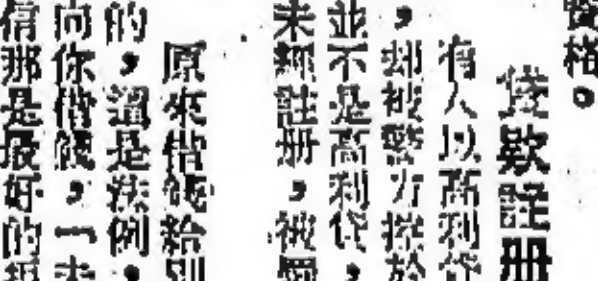 資格。
貸款註册
有人以高利貸
，却被警方控於
並不是高利貸，
未經註册，被罰
原來借錢給別
的，這是法例，
向你借錢，一未
信那是最好的